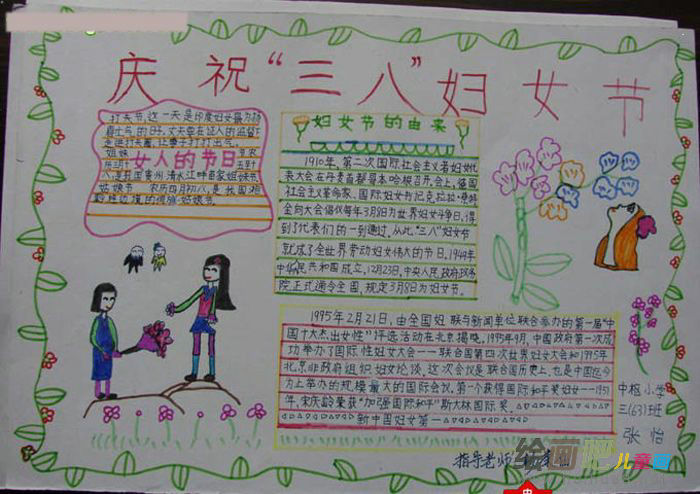 庆祝“三八”妇女节
打夫节,这一天是印度妇女最为扬
眉吐气的日子,丈夫要在证人的监督下
走进打夫篱,让妻子打打出气。
姐妹
女人的节日
节 农
八,是我国贵州清水江畔苗家姐妹节
姑娘节 农历四月初八,是我国湘
姑娘节
妇女节的由来
1910年,第二次国际社会主义者妇女代
表大会在丹麦首都哥本哈根召开,会上,德国
社会主义革命家、国际妇女书记克拉拉·蔡特
金向大会倡仪每年3月8日为世界妇女斗争日,得
到了代表们的一到通过,从此“三八”妇女节
就成了全世界劳动妇女伟大的节日,1949年
中华民共和国成立,12月23日,中央人民政府政务
院正式通令全国,规定3月8日为妇女节。
1995年2月21日,由全国妇联与新闻单位联合举办的第一届“中
国十大杰出女性”评选活动在北京揭晓。1995年9月,中国政府第一次成
功举办了国际性妇女大会——联合国第四次世界妇女大会和1995年
北京非政府组织妇女论谈,这次会议是联合国历史上,也是中国迄今
为止举办的规模最大的国际会议,第一个获得国际和平奖妇女——1951
年,宋庆龄荣获“加强国际和平”斯大林国际奖。
新中国妇女第一
中枢小学
三(63)班
张怡
指导老师
绘画吧
儿童画